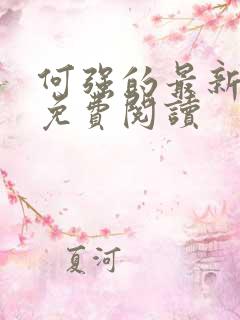 何强的最新
免費閱讀
夏河